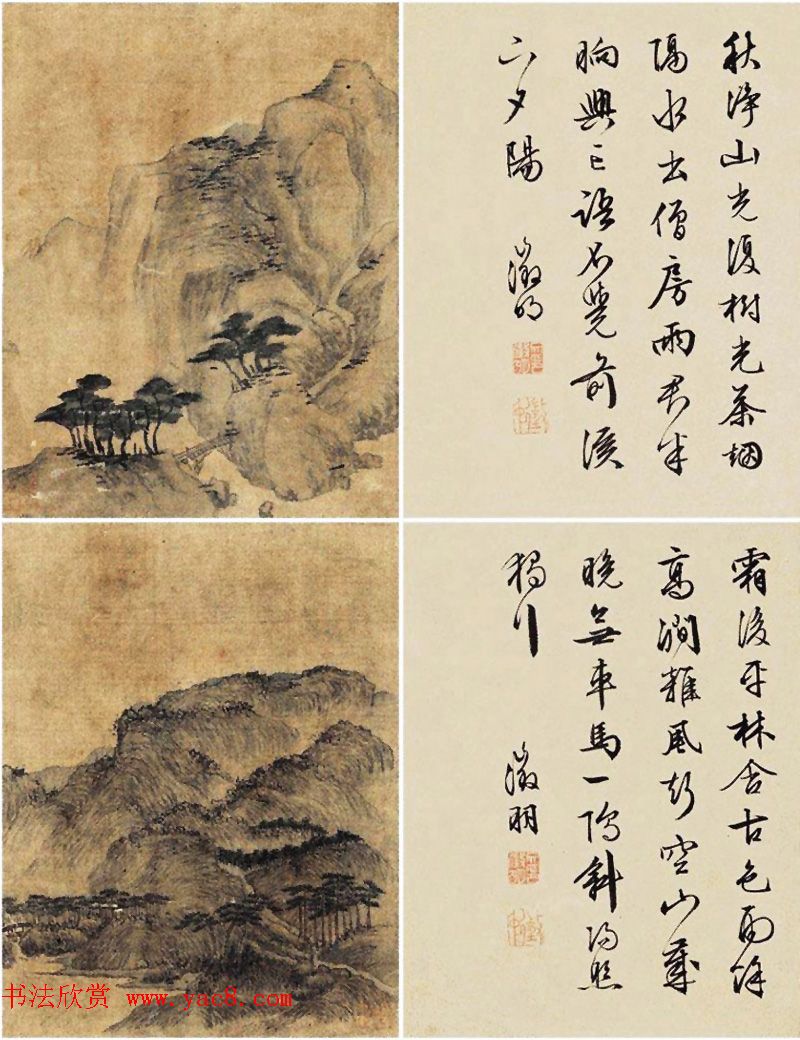 秋净山光復樹光茶烟
隔水出僧房雨君半
晌興亡語不覺前溪
下夕陽 徵明
霜後平林含古色雨餘
高澗雜風聲空山歲
晚無車馬一隖斜陽照
獨行 徵明
书法欣赏 www.yac8.com